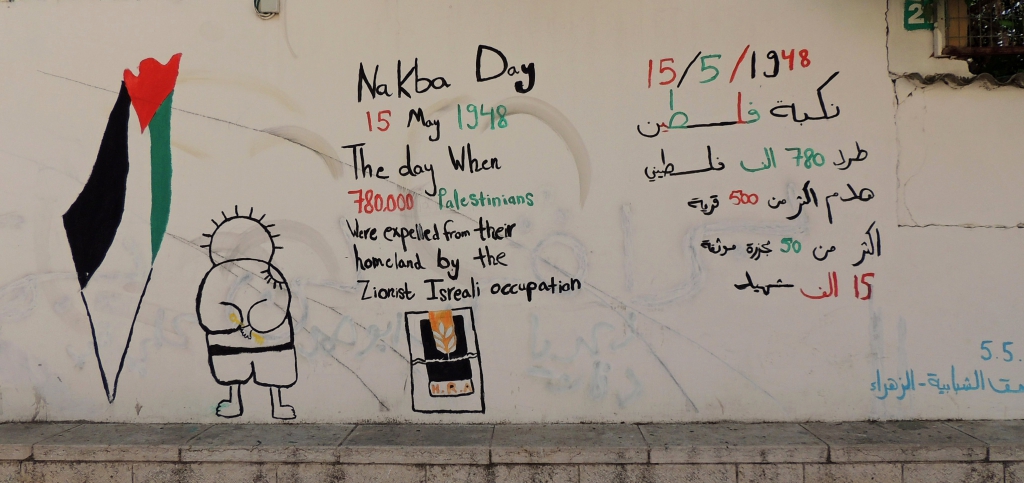 Nakba Day
15 May 1948
The day When
780.000 Palestinians
Were expelled from their
homeland by the
Zionist Isreali occupation
15/5/1948
نكبة فلسطين
طرد 780 الف فلسطيني
هدم اكثر من 500 قرية
اكثر من 50 مجزرة موثقة
15 الف شهيد
2
5.5.
الشبابية - الزهراء